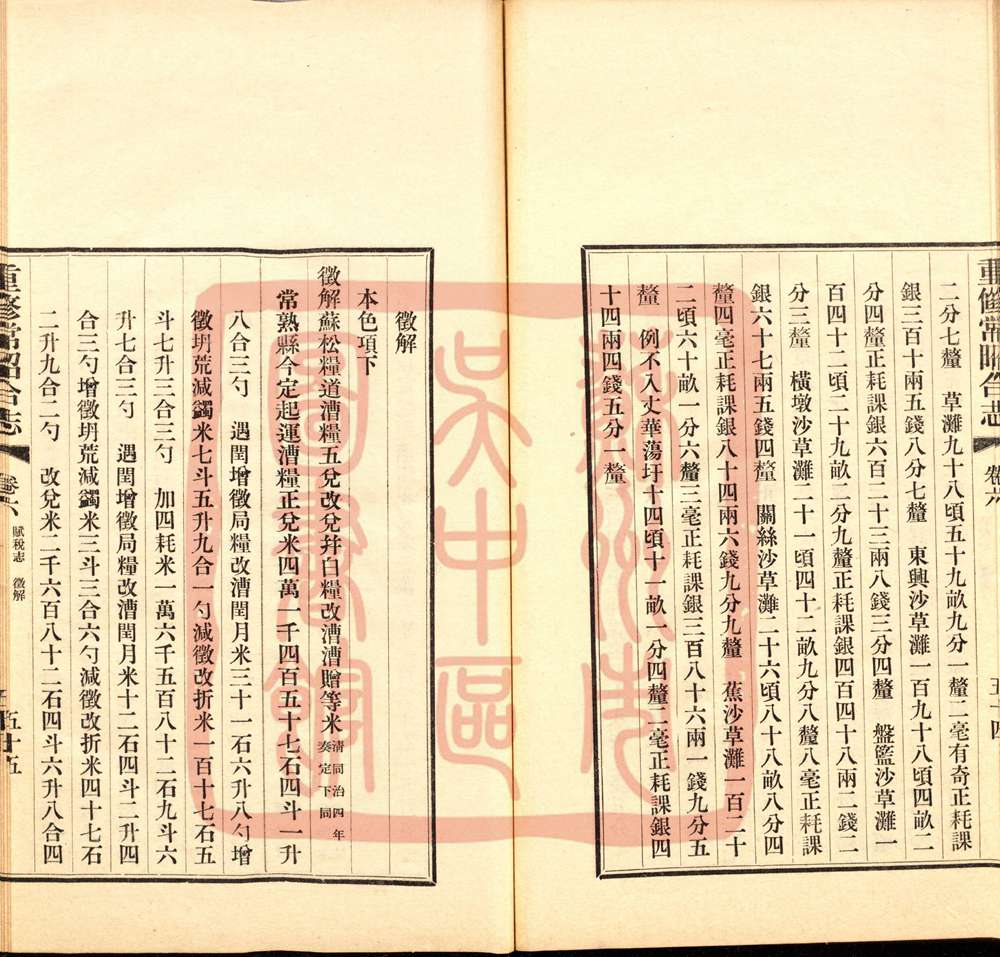 重修常昭合志
卷六
五十四
二分七釐　草灘九十八頃五十九畝九分一釐二毫有奇正耗課
銀三百十兩五錢八分七釐　東興沙草灘一百九十八頃四畝二
分四釐正耗課銀六百二十三兩八錢三分四釐　盤籃沙草灘一
百四十二頃二十九畝二分九釐正耗課銀四百四十八兩二錢二
分三釐　橫墩沙草灘二十一頃四十二畝九分八釐八毫正耗課
銀六十七兩五錢四釐　關絲沙草灘二十六頃八十八畝八分四
釐四毫正耗課銀八十四兩六錢九分九釐　蕉沙草灘一百二十
二頃六十畝一分六釐三毫正耗課銀三百八十六兩一錢九分五
釐　例不入丈華蕩圩十四頃十一畝一分四釐二毫正耗課銀四
十四兩四錢五分一釐
徵解
本色項下
徵解蘇松糧道漕糧五兌改兌幷白糧改漕漕贈等米清同治四年
奏定下同
常熟縣今定起運漕糧正兌米四萬一千四百五十七石四斗一升
八合三勺　遇閏增徵局糧改漕閏月米三十一石六升八勺增
徵坍荒減蠲米七斗五升九合一勺減徵改折米一百十七石五
斗七升三合三勺　加四耗米一萬六千五百八十二石九斗六
升七合三勺　遇閏增徵局糧改漕閏月米十二石四斗二升四
合三勺增徵坍荒減蠲米三斗三合六勺減徵改折米四十七石
二升九合二勺　改兌米二千六百八十二石四斗六升八合四
重修常昭合志
卷六
賦稅志　徵解
五十五
吳中區